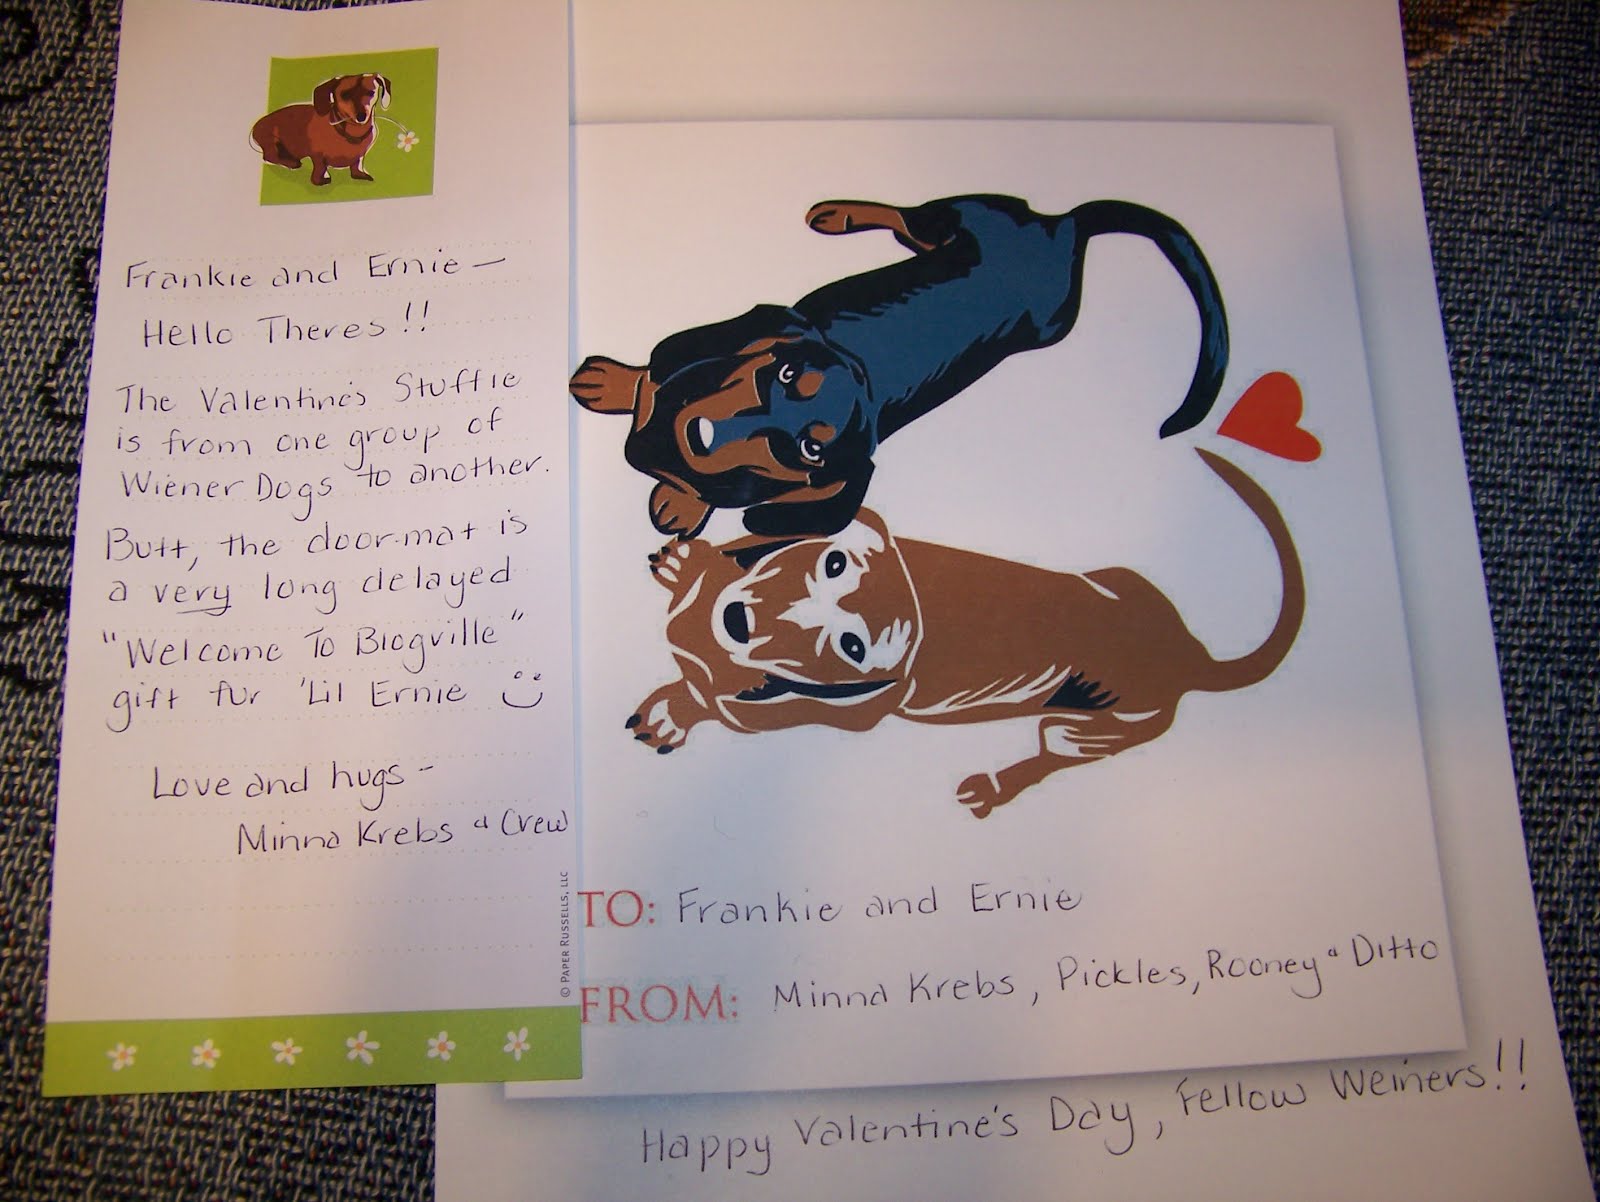 Frankie and Ernie —
Hello Theres!!
The Valentine's Stuffie
is from one group of
Wiener Dogs to another.
Butt, the door-mat is
a very long delayed
"Welcome To Blogville"
gift fur 'Lil Ernie
Love and hugs -
Minna Krebs & Crew
© PAPER RUSSELLS, LLC
TO: Frankie and Ernie
FROM: Minna Krebs, Pickles, Rooney & Ditto
Happy Valentine's Day, Fellow Weiners!!